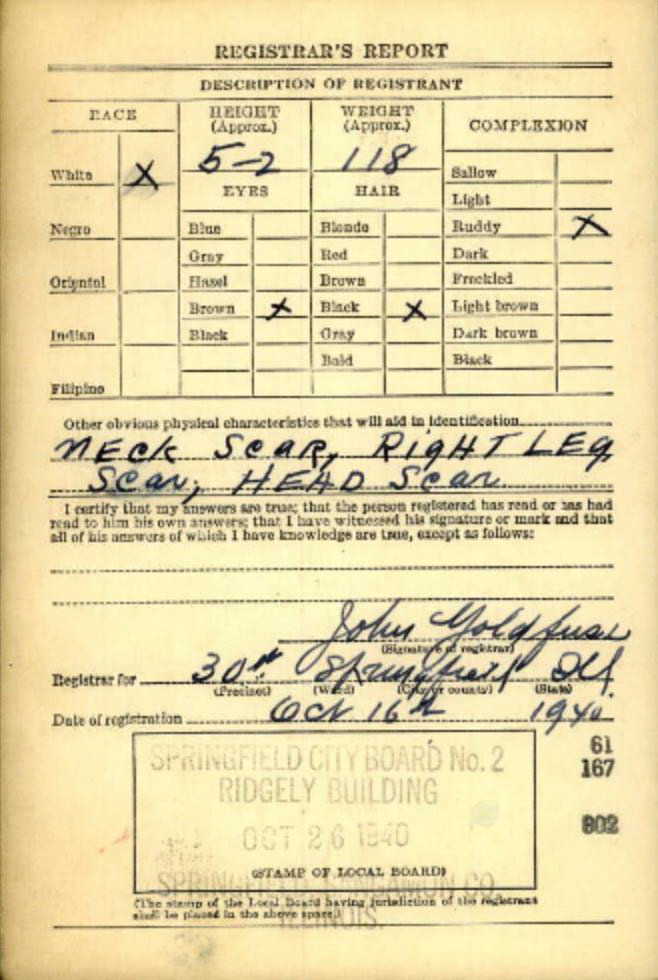 REGISTRAR'S REPORT
DESCRIPTION OF REGISTRANT
RACE HEIGHT (Approx.) WEIGHT (Approx.) COMPLEXION
5-2 118
White X EYES HAIR Sallow
Light
Negro Blue Blonde Ruddy X
Gray Red Dark
Oriental Hazel Brown Freckled
Brown X Black X Light brown
Indian Black Gray Dark brown
Bald Black
Filipino
Other obvious physical characteristics that will aid in identification
NECK SCAR, RIGHT LEG
SCAR, HEAD SCAR
I certify that my answers are true; that the person registered has read or has had
read to him his own answers; that I have witnessed his signature or mark and that
all of his answers of which I have knowledge are true, except as follows:
John Goldfuse
(Signature of registrar)
Registrar for 30th Springfield Ill
(Precinct) (Ward) (City or county) (State)
Date of registration Oct 16th 1940
61
167
802
SPRINGFIELD CITY BOARD No. 2
RIDGELY BUILDING
OCT 26 1940
(STAMP OF LOCAL BOARD)
SPRINGFIELD, SANGAMON CO.
ILLINOIS.
(The stamp of the Local Board having jurisdiction of the registrant
shall be placed in the above space.)